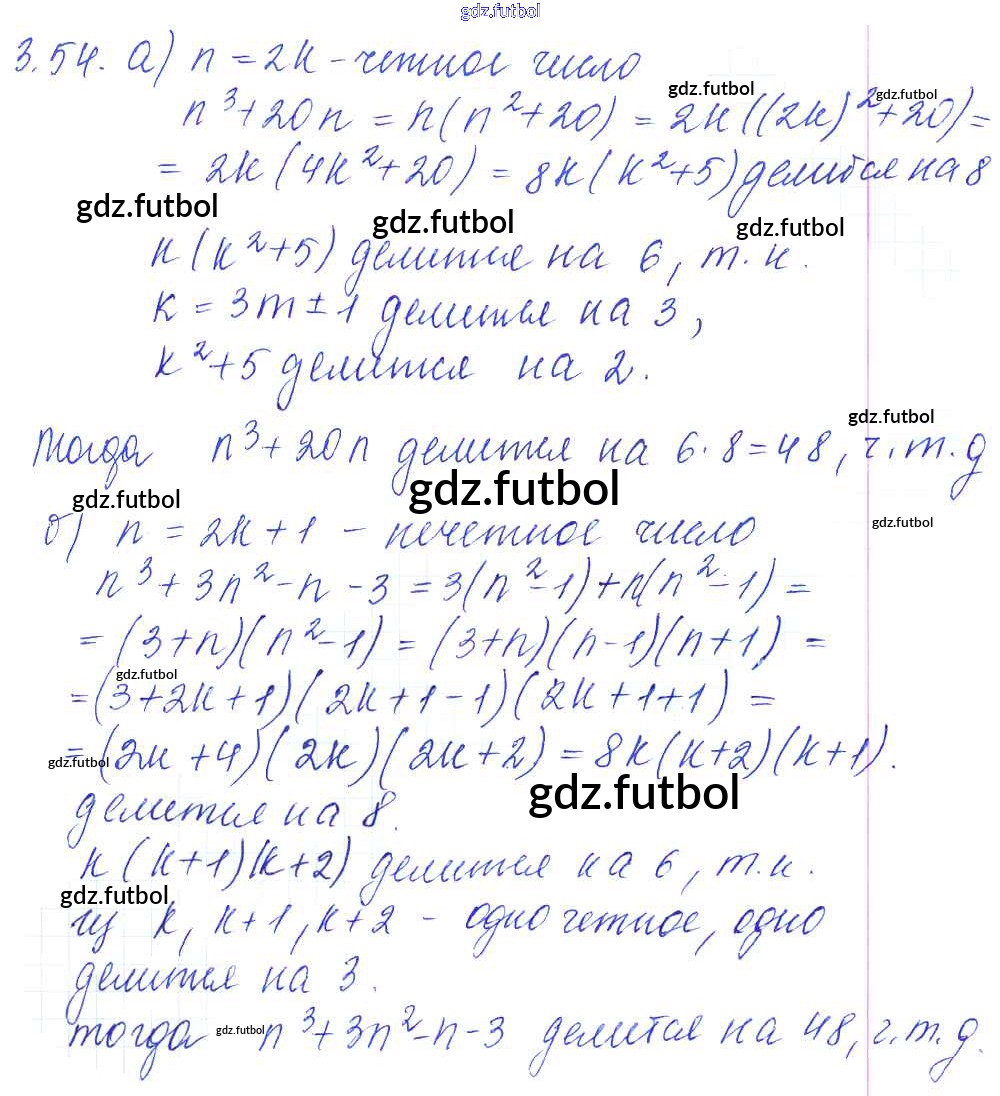 gdz.futbol
3.54. а) n = 2k - четное число
gdz.futbol gdz.futbol
n³ + 20n = n(n² + 20) = 2k((2k)² + 20) =
= 2k(4k² + 20) = 8k(k² + 5) делится на 8
gdz.futbol gdz.futbol gdz.futbol
k(k² + 5) делится на 6, т.к.
k = 3m ± 1 делится на 3,
k² + 5 делится на 2.
gdz.futbol
Тогда n³ + 20n делится на 6·8 = 48, ч.т.д
gdz.futbol gdz.futbol gdz.futbol
б) n = 2k + 1 - нечетное число
n³ + 3n² - n - 3 = 3(n² - 1) + n(n² - 1) =
= (3 + n)(n² - 1) = (3 + n)(n - 1)(n + 1) =
gdz.futbol
= (3 + 2k + 1)(2k + 1 - 1)(2k + 1 + 1) =
= (2k + 4)(2k)(2k + 2) = 8k(k + 2)(k + 1).
gdz.futbol gdz.futbol
делится на 8.
k(k + 1)(k + 2) делится на 6, т.к.
gdz.futbol
из k, k + 1, k + 2 - одно четное, одно
делится на 3.
тогда n³ + 3n² - n - 3 делится на 48, ч.т.д.
gdz.futbol